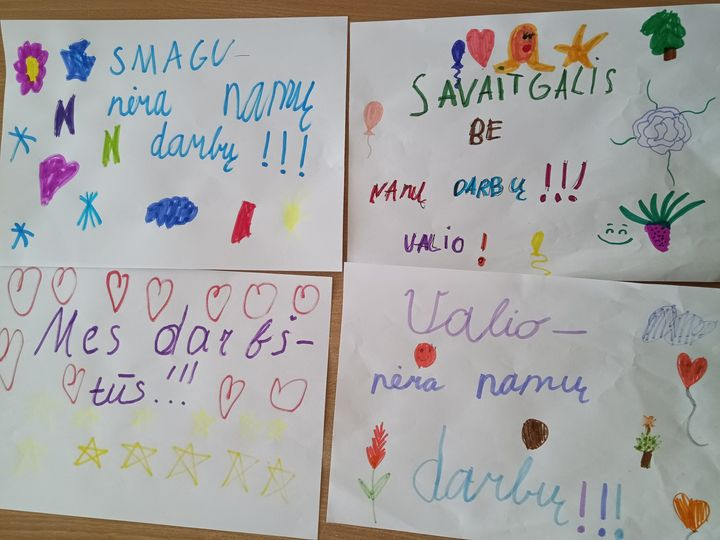 SMAGU-
nėra namų
darbų !!!
SAVAITGALIS
BE
NAMŲ DARBŲ!!!
VALIO!
Mes darbš-
tūs...!!!
Valio-
nėra namų
darbų!!!